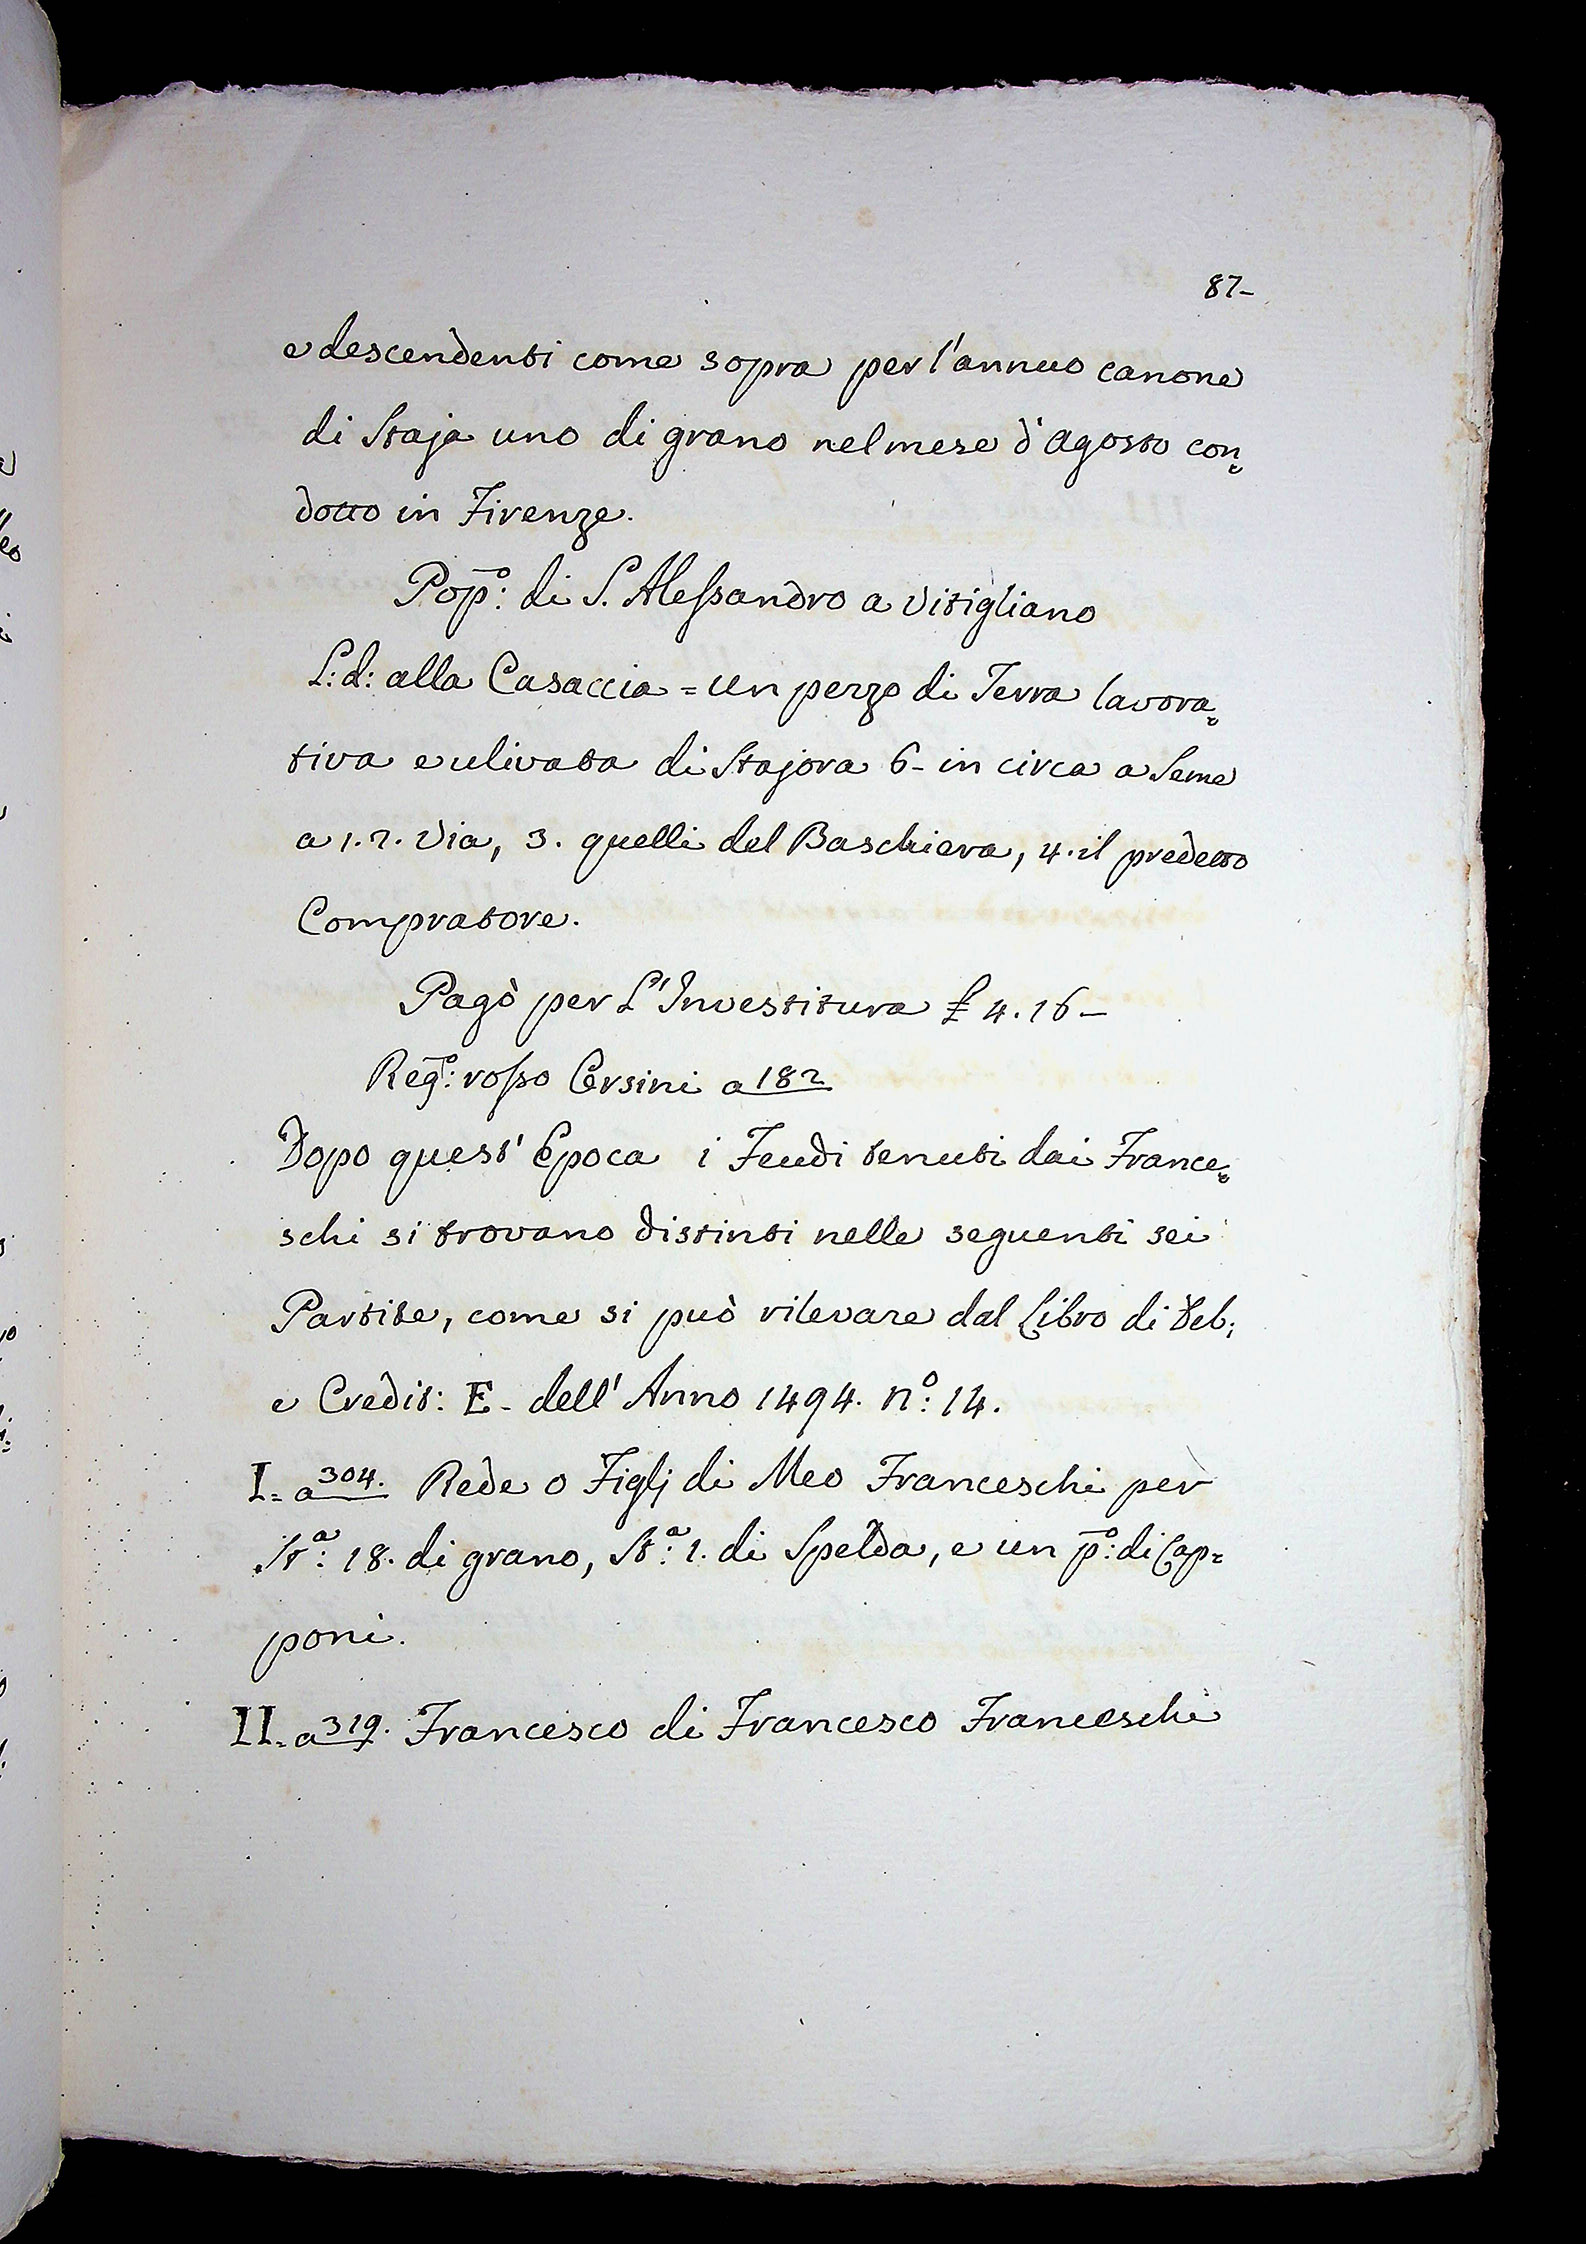 87-
e descendenti come sopra per l'annuo canone
di Staja uno di grano nel mese d'agosto con=
dotto in Firenze.
Pop.o: di S. Alessandro a Vitigliano
L: d: alla Casaccia = Un pezzo di Terra lavora=
tiva e ulivata di Stajora 6- in circa a Seme
a 1. 2. Via, 3. quelli del Baschiera, 4. il predetto
Compratore.
Pagò per L'Investitura £ 4. 16 -
Reg.o: rosso Corsini a 182
Dopo quest' Epoca i Feudi tenuti dai France=
schi si trovano distinti nelle seguenti sei
Partite, come si può rilevare dal Libro di Deb:
e Credit: E - dell' Anno 1494. n.o: 14.
I = a 304. Rede o Figlj di Meo Franceschi per
St.a: 18. di grano, St.a: 1. di Spelda, e un p.o: di Cap=
poni.
II = a 319. Francesco di Francesco Franceschi